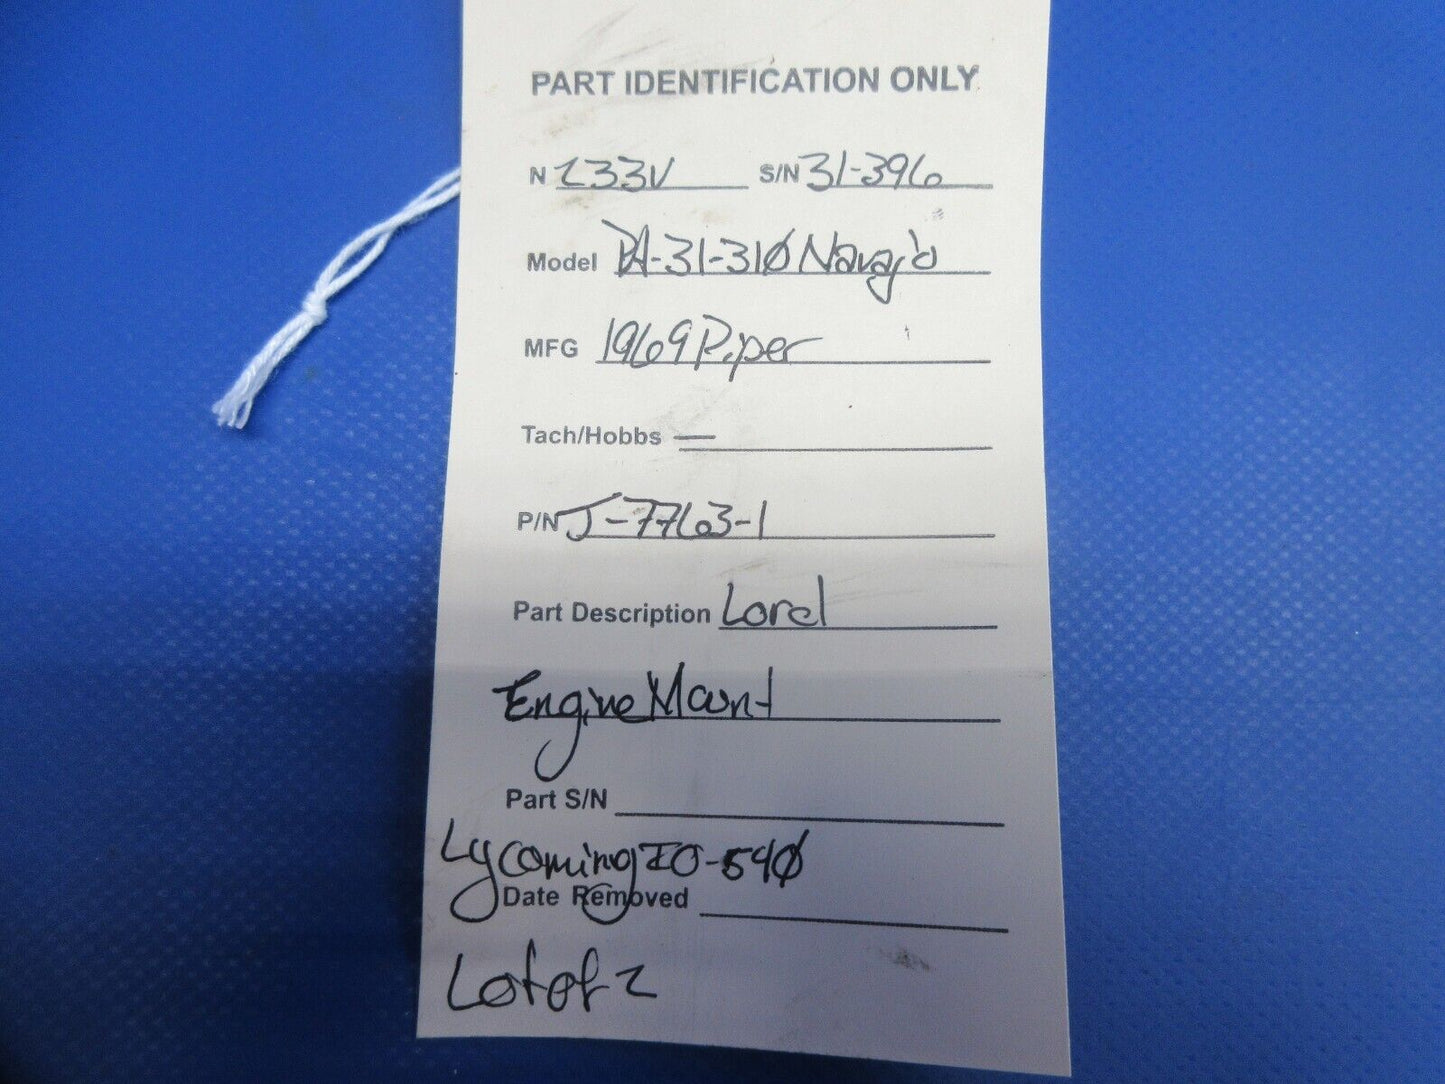 PART IDENTIFICATION ONLY
N 233V S/N 31-396
Model PA-31-310 Navajo
MFG 1969 Piper
Tach/Hobbs —
P/N J-7763-1
Part Description Lord
Engine Mount
Part S/N
Lycoming IO-540
Date Removed
Lot of 2